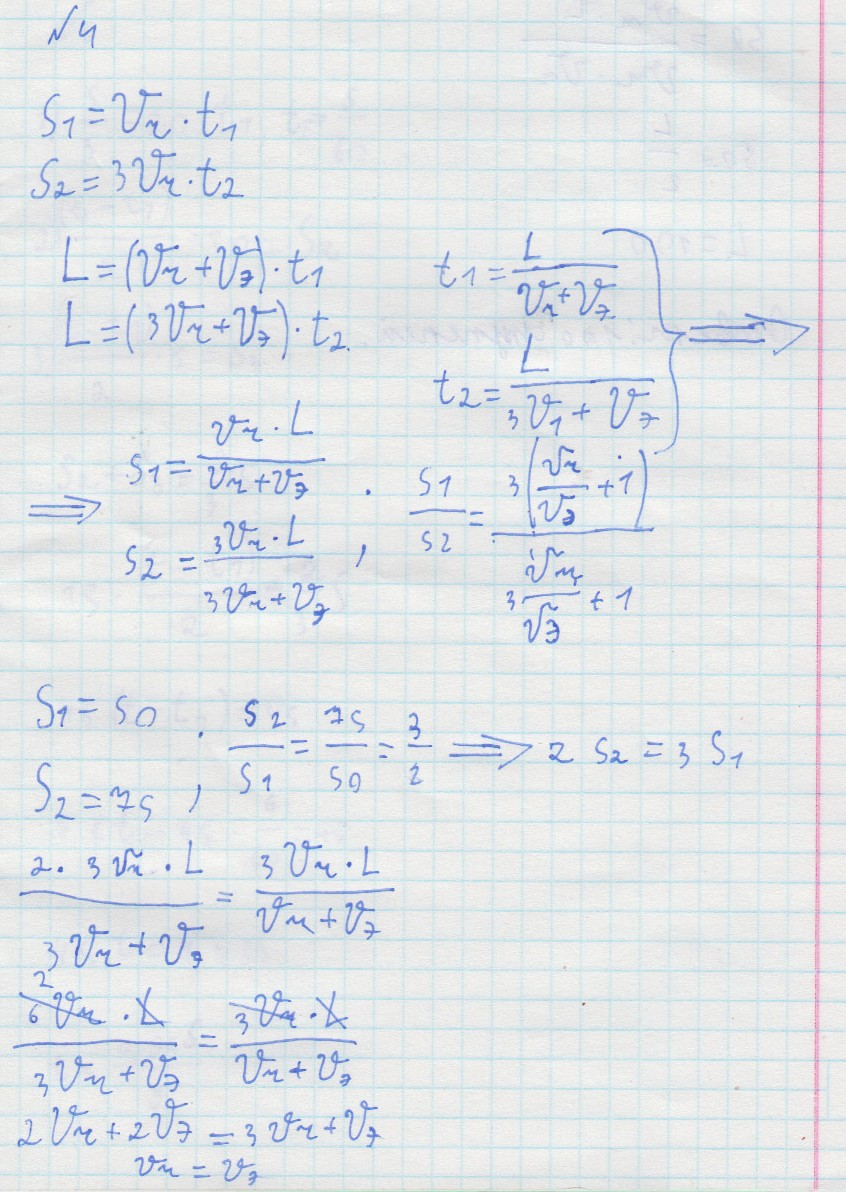 №4
S1 = Vч · t1
S2 = 3Vч · t2
L = (Vч + Vэ) · t1
L = (3Vч + Vэ) · t2
t1 = L / (Vч + Vэ)
t2 = L / (3V1 + Vэ) ⟹
⟹ S1 = Vч · L / (Vч + Vэ)
S2 = 3Vч · L / (3Vч + Vэ) ;
S1 / S2 = 3(Vч / Vэ + 1) / (3 Vч / Vэ + 1)
S1 = 50
S2 = 75 ; S2 / S1 = 75 / 50 = 3 / 2 ⟹ 2 S2 = 3 S1
2 · 3Vч · L / (3Vч + Vэ) = 3Vч · L / (Vч + Vэ)
2
6Vч · L / (3Vч + Vэ) = 3Vч · L / (Vч + Vэ)
2Vч + 2Vэ = 3Vч + Vэ
Vч = Vэ